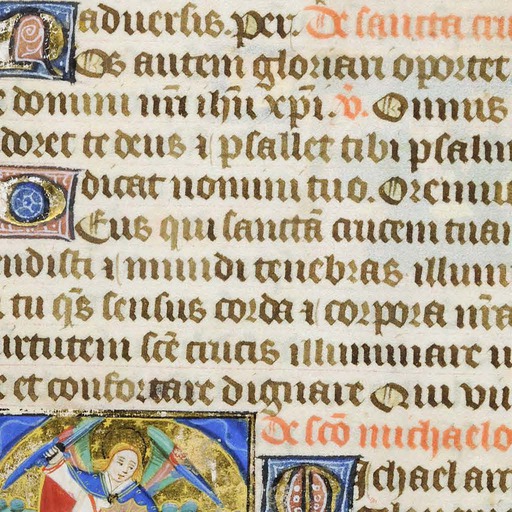 aduersis. per. De sancta cru
Nos autem gloriari oportet
domini nr̄i ihū xpī. v̄. Omnis
doret te deus ⁊ psallet tibi psalm
dicat nomini tuo. Oremus
Deus qui sanctā crucem tuam
endisti ⁊ mundi tenebras illumi
tu q̄s sensus corda ⁊ corpora nr̄a
uirtutem scē crucis illuminare
et confortare dignare Qui viu
De scō michaelo
Michael arc